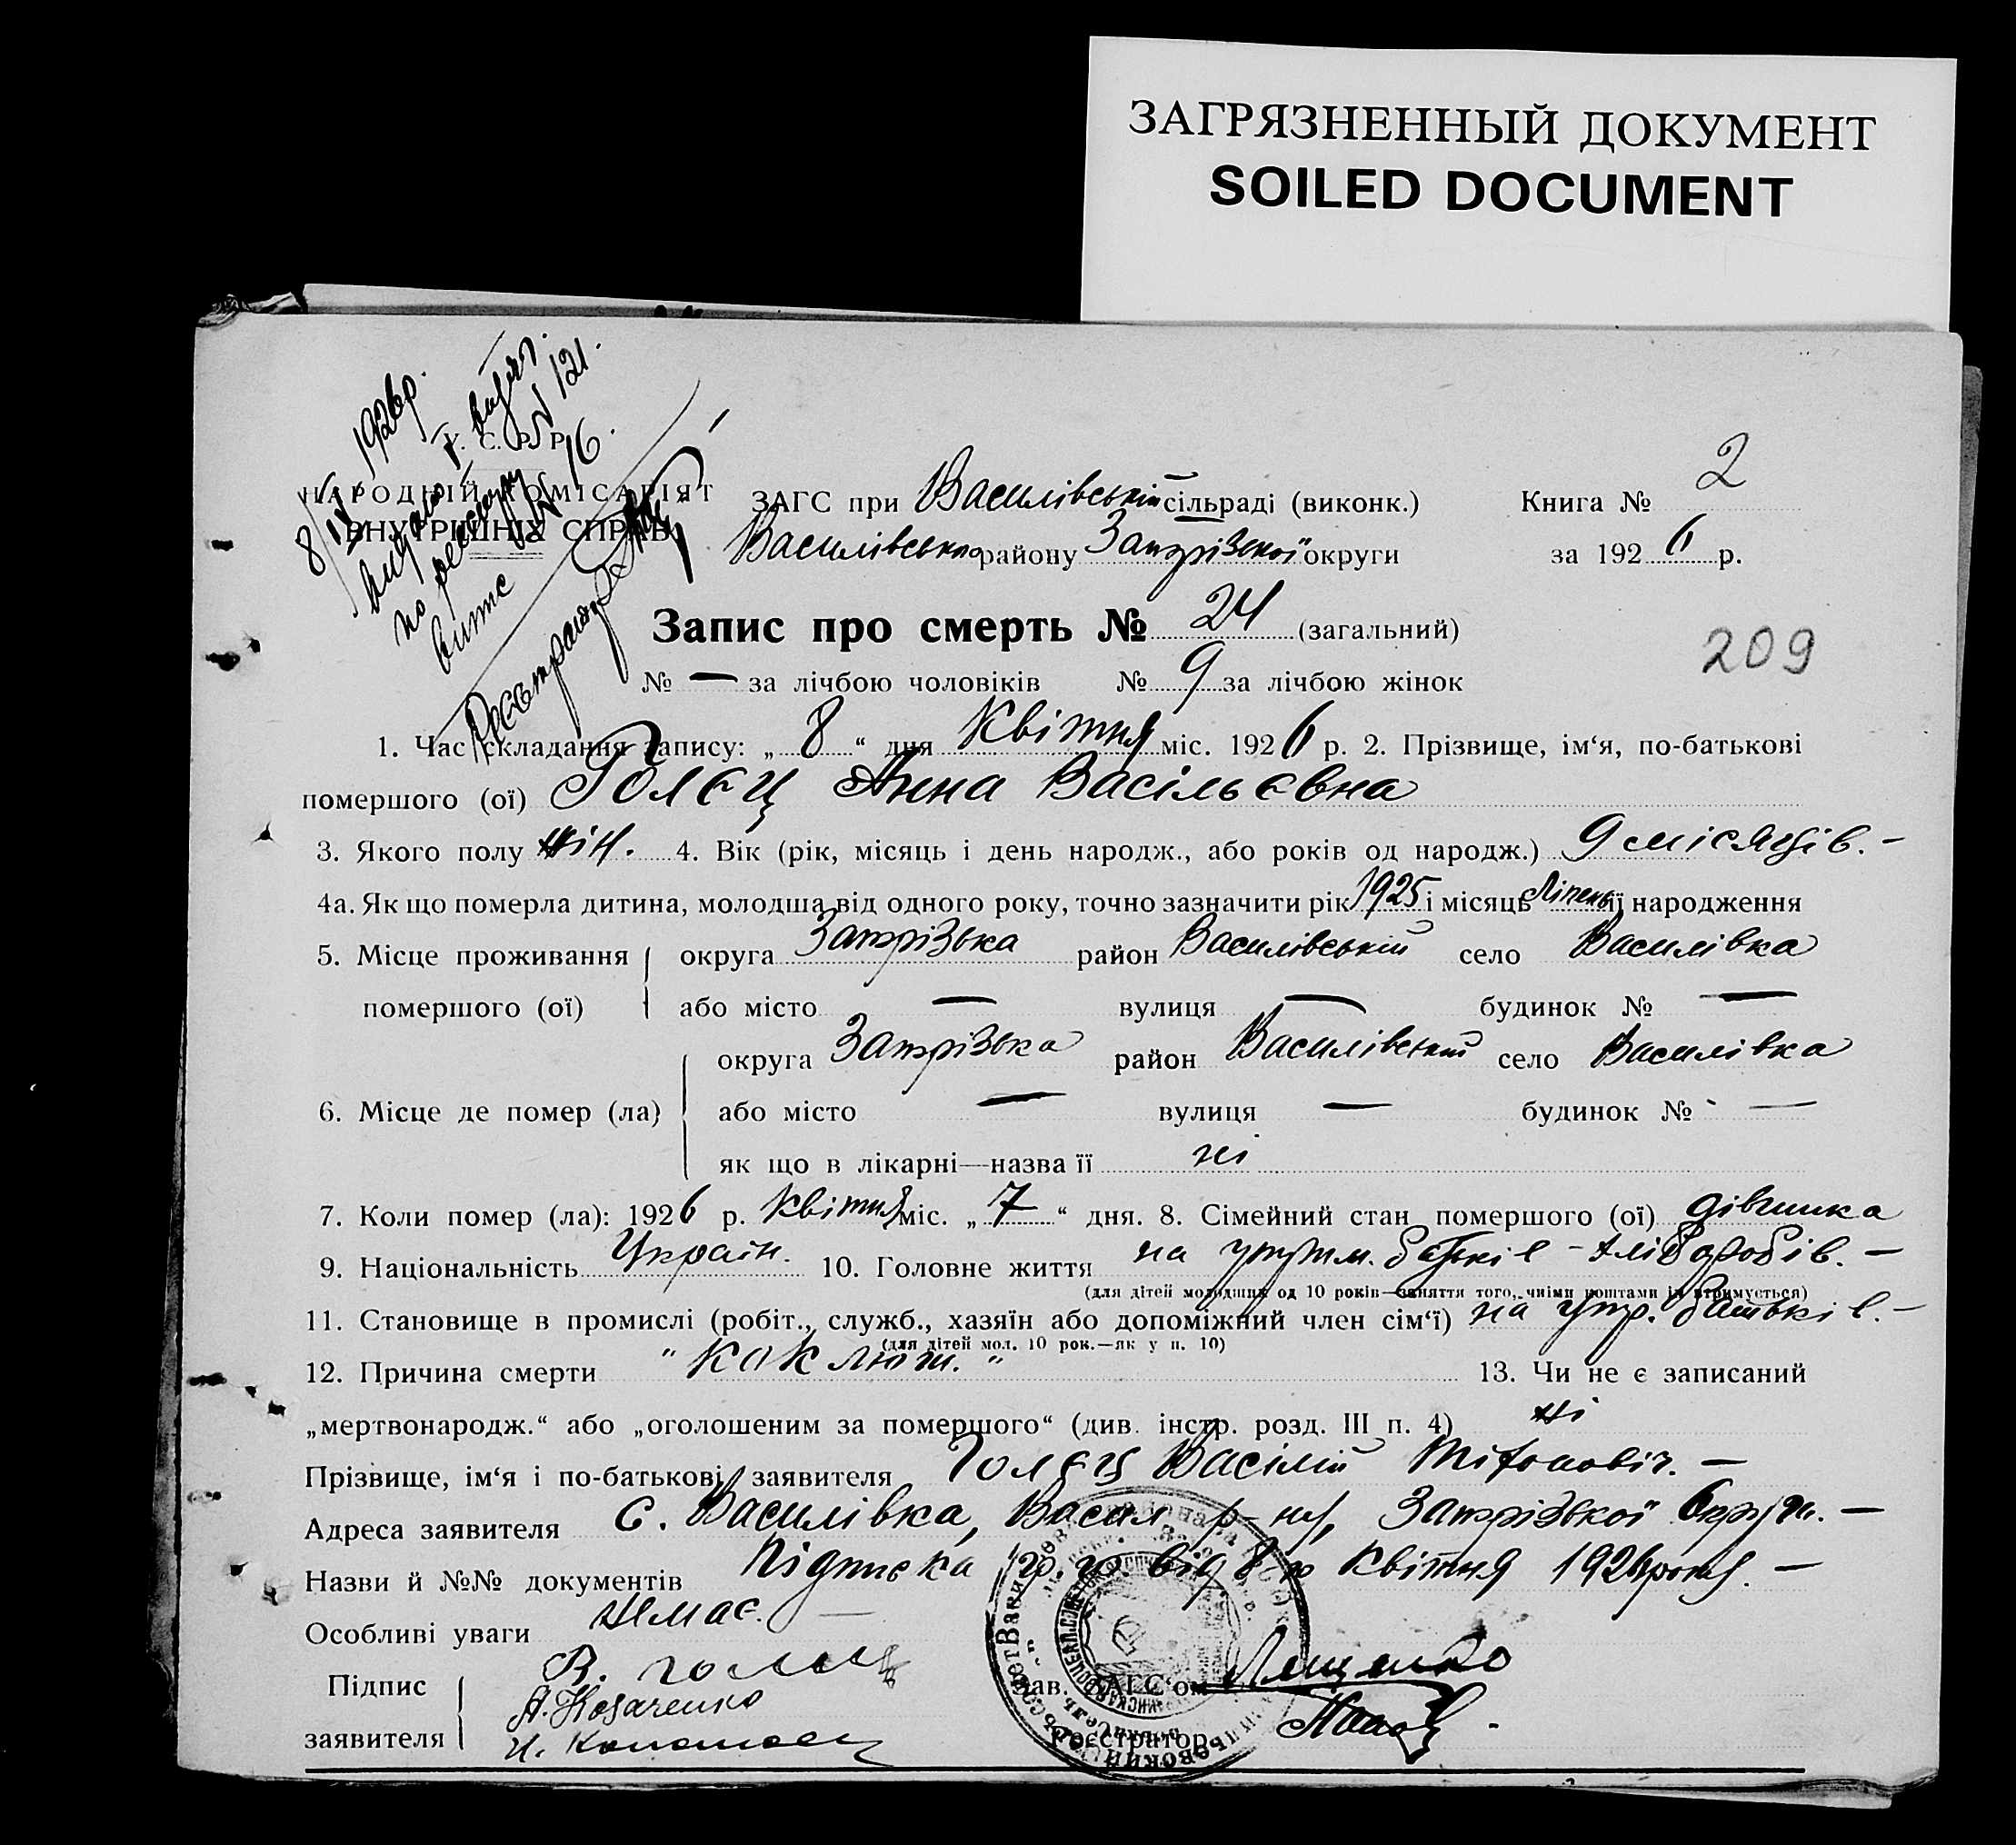 ЗАГРЯЗНЕННЫЙ ДОКУМЕНТ
SOILED DOCUMENT
8/IV 1926р.
видано витяг.
по реєстру № 121.
витяг № 16.
Реєстратор
У. С. Р. Р.
НАРОДНІЙ КОМІСАРІЯТ
ВНУТРІШНІХ СПРАВ
ЗАГС при Василівській сільраді (виконк.) Книга № 2
Василівського району Запорізької округи за 1926 р.
Запис про смерть № 24 (загальний)
209
№ — за лічбою чоловіків № 9 за лічбою жінок
1. Час складання запису: „8“ дня Квітня міс. 1926 р. 2. Прізвище, ім‘я, по-батькові
помершого (ої) Голєц Анна Васільєвна
3. Якого полу жін. 4. Вік (рік, місяць і день народж., або років од народж.) 9 місяців. –
4а. Як що померла дитина, молодша від одного року, точно зазначити рік 1925 і місяць Ліпень її народження
5. Місце проживання округа Запорізька район Василівській село Василівка
помершого (ої) або місто — вулиця — будинок № —
округа Запорізька район Василівській село Василівка
6. Місце де помер (ла) або місто — вулиця — будинок № —
як що в лікарні—назва її ні
7. Коли помер (ла): 1926 р. Квітня міс. „7“ дня. 8. Сімейний стан помершого (ої) дівчинка
9. Національність Україн. 10. Головне життя на утрим. батьків – хліборобів. —
(для дітей молодших од 10 років—заняття того, чиїми коштами ін втримується)
11. Становище в промислі (робіт., служб., хазяїн або допоміжний член сім‘ї) на утр. батьків. –
(для дітей мол. 10 рок.—як у п. 10)
12. Причина смерти „Коклюш.“ 13. Чи не є записаний
„мертвонародж.“ або „оголошеним за помершого“ (див. інстр. розд. III п. 4) ні
Прізвище, ім‘я і по-батькові заявителя Голєц Васілій —
Адреса заявителя с. Василівка, Васил р-ну, Запорізької Округи. —
Назви й №№ документів Підписка від 8го Квітня 1926 року. —
Особливі уваги немає. —
Підпис В. Голец
А. Козаченко
заявителя
Зав. ЗАГС‘ом Лященко
Реєстратор